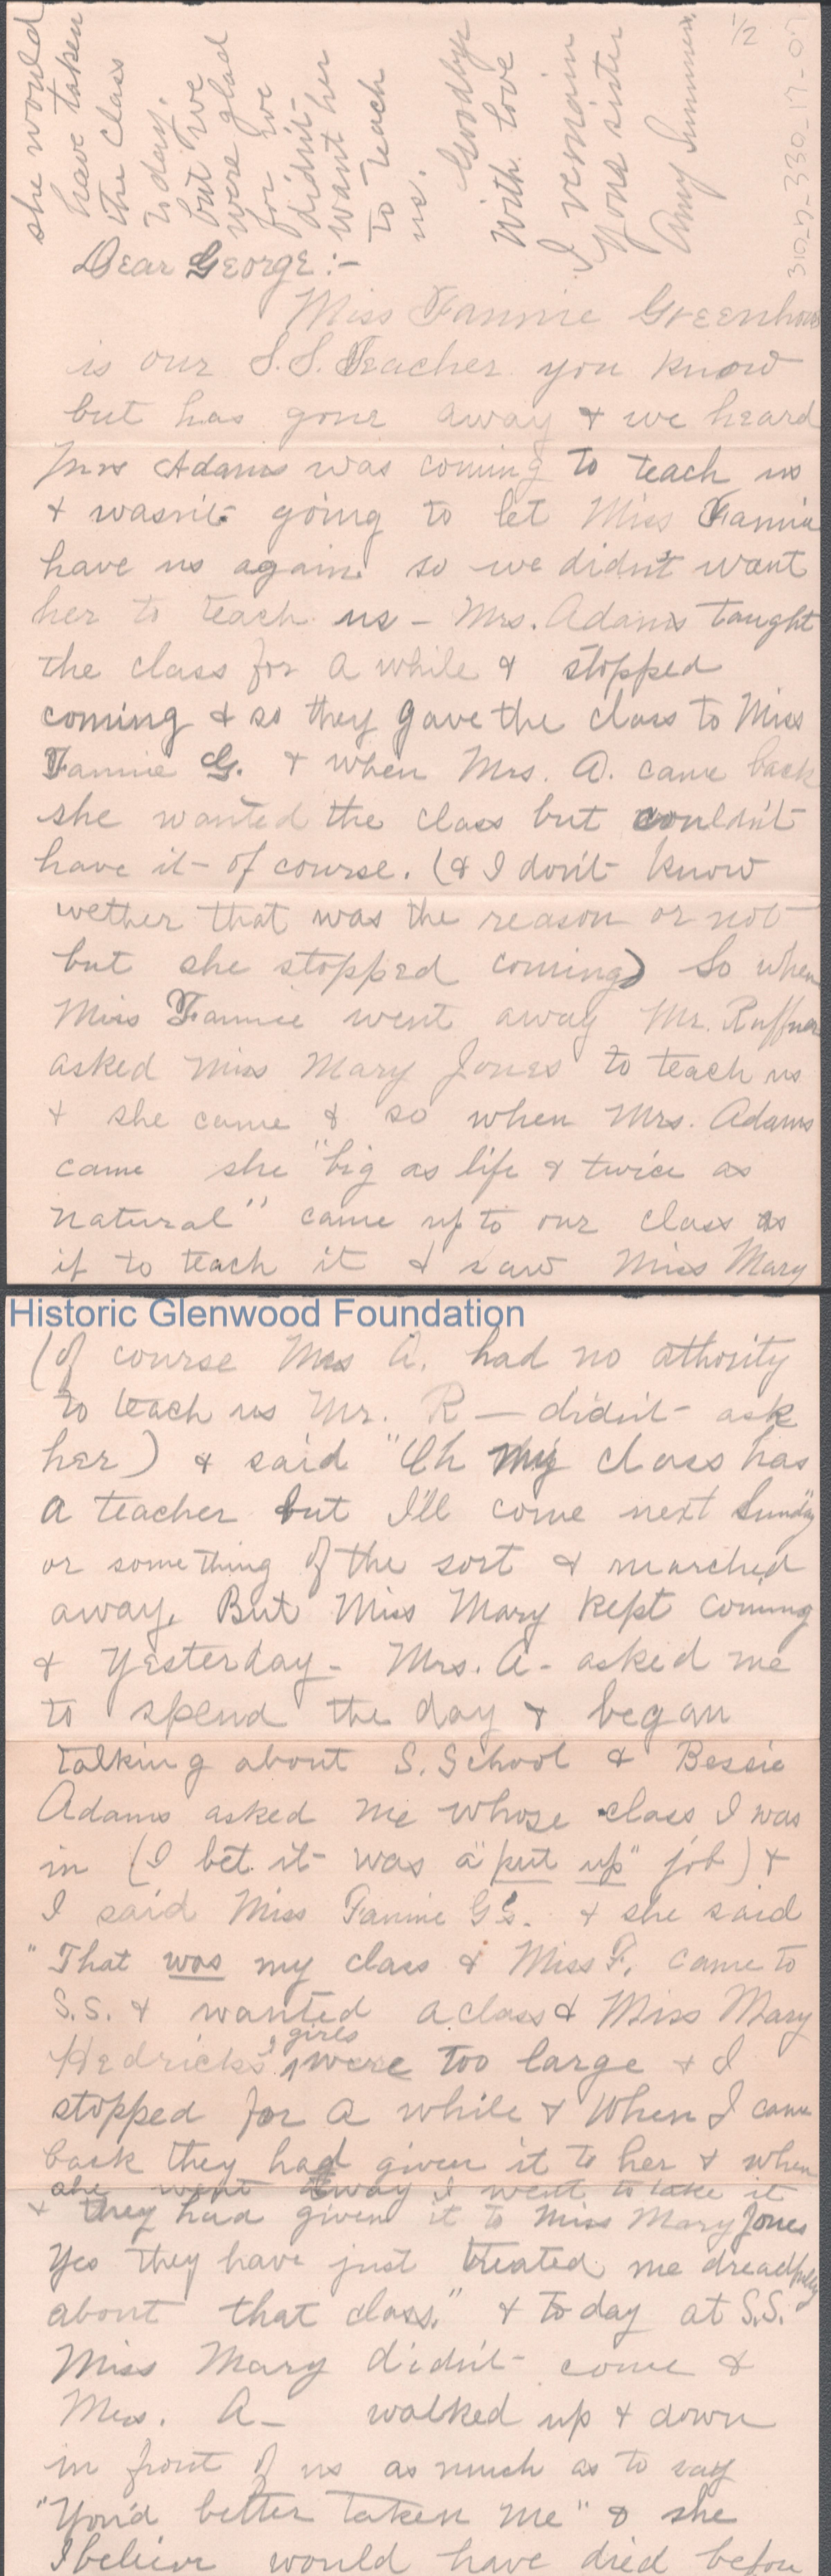 Dear George:-
Miss Fannie Greenhow
is our S.S. Teacher you know
but has gone away & we heard
Mrs Adams was coming to teach us
& wasn't going to let Miss Fannie
have us again so we didn't want
her to teach us - Mrs. Adams taught
the class for a while & stopped
coming & so they gave the class to Miss
Fannie G. & when Mrs. A. came back
she wanted the class but couldn't
have it - of course. (& I don't know
wether that was the reason or not
but she stopped coming) So when
Miss Fannie went away Mr. Ruffner
asked Miss Mary Jones to teach us
& she came & so when Mrs. Adams
came she "big as life & twice as
natural" came up to our class as
if to teach it & saw Miss Mary
Historic Glenwood Foundation
(of course Mrs A. had no athority
to teach us Mr. R — didn't ask
her) & said "Oh my class has
a teacher but I'll come next Sunday"
or something of the sort & marched
away. But Miss Mary kept coming
& yesterday - Mrs. A - asked me
to spend the day & began
talking about S. School & Bessie
Adams asked me whose class I was
in (I bet it was a "put up" job) &
I said Miss Fannie G's. & she said
"That was my class & Miss F. came to
S.S. & wanted a class & Miss Mary
Hedrick's girls were too large & I
stopped for a while & when I came
back they had given it to her & when
she went away I went to take it
& they had given it to Miss Mary Jones
Yes they have just treated me dreadfully
about that class." & to day at S.S.
Miss Mary didn't come &
Mrs. A - walked up & down
in front of us as much as to say
"You'd better taken me" & she
I believe would have died before
she would
have taken
the class
to day.
but we
were glad
for we
didn't
want her
to teach
us.
Goodbye
With love
I remain
your sister
Amy Summers.
1/2
310_n_330_17_07